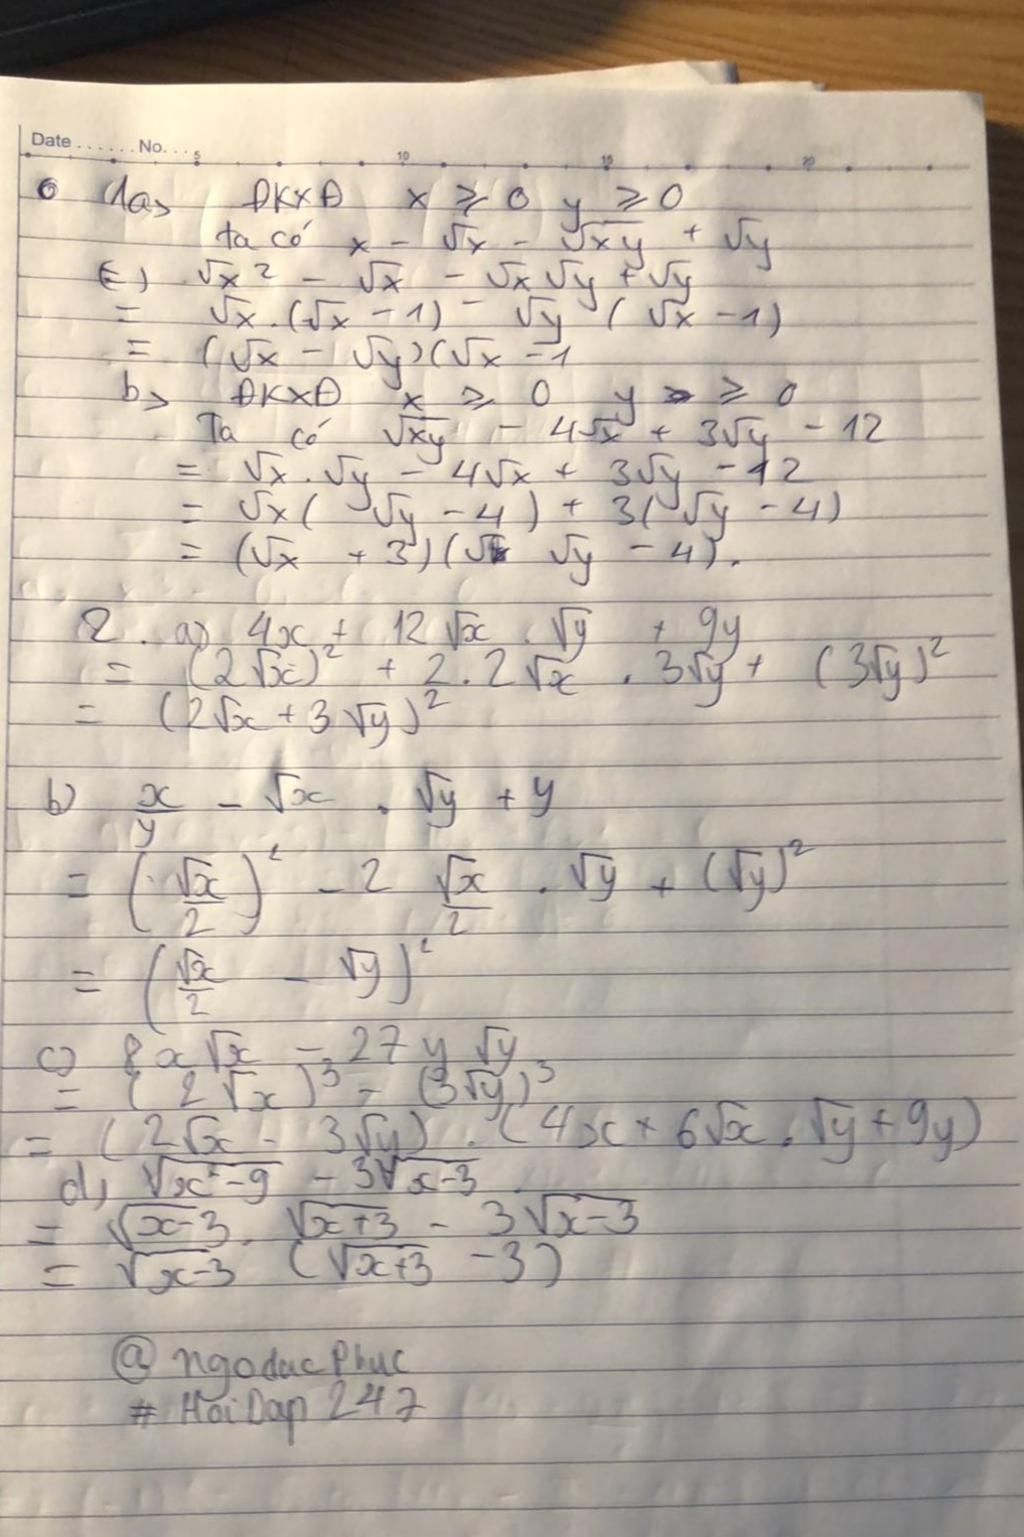 Date ...... No... 5 10 15 20
1a> ĐKXĐ x ≥ 0 y ≥ 0
ta có x - √x - √xy + √y
(=) √x² - √x - √x√y + √y
= √x.(√x - 1) - √y (√x - 1)
= (√x - √y)(√x - 1
b> ĐKXĐ x ≥ 0 y ≥ 0
Ta có √xy - 4√x + 3√y - 12
= √x.√y - 4√x + 3√y - 12
= √x(√y - 4) + 3(√y - 4)
= (√x + 3)(√y - 4).
2. a) 4x + 12√x.√y + 9y
= (2√x)² + 2.2√x.3√y + (3√y)²
= (2√x + 3√y)²
b) x/y - √x.√y + y
= (√x/2)² - 2 √x/2 . √y + (√y)²
= (√x/2 - √y)²
c) 8x√x - 27y√y
= (2√x)³ - (3√y)³
= (2√x - 3√y).(4x + 6√x.√y + 9y)
d, √x²-9 - 3√x-3
= √x-3. √x+3 - 3√x-3
= √x-3 (√x+3 - 3)
@ ngoducPhuc
# HoiDap 247